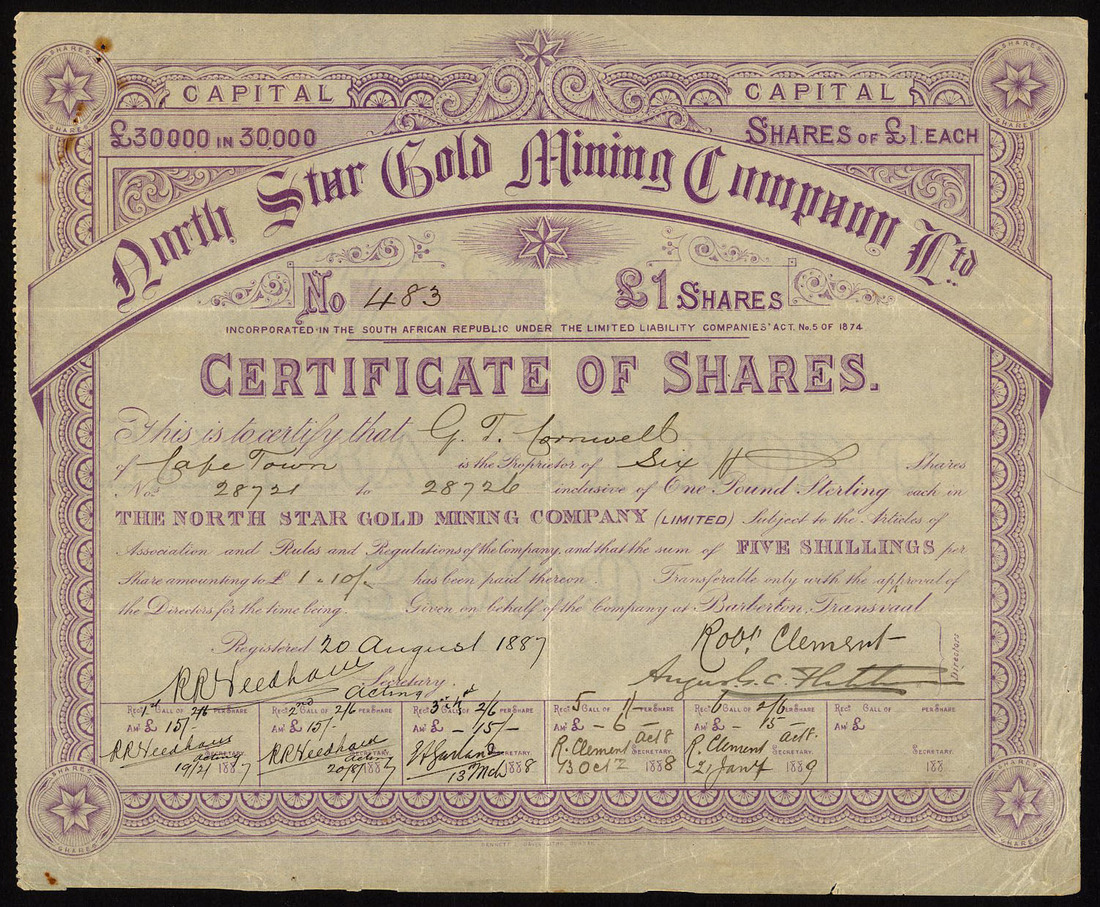 SHARES
SHARES
CAPITAL
CAPITAL
SHARES
SHARES
£30000 IN 30,000
SHARES OF £1. EACH
North Star Gold Mining Company Ltd
No 483
£1 SHARES
INCORPORATED IN THE SOUTH AFRICAN REPUBLIC UNDER THE LIMITED LIABILITY COMPANIES' ACT, No. 5 OF 1874
CERTIFICATE OF SHARES.
This is to certify that G. T. Cornwell
of Cape Town is the Proprietor of Six Shares
Nos 28721 to 28726 inclusive of One Pound Sterling each in
THE NORTH STAR GOLD MINING COMPANY (LIMITED) Subject to the Articles of
Association and Rules and Regulations of the Company, and that the sum of FIVE SHILLINGS per
Share amounting to £ 1-10/- has been paid thereon. Transferable only with the approval of
the Directors for the time being. Given on behalf of the Company at Barberton, Transvaal
Registered 20 August 1887
Robt Clement
RR Needham Secretary. acting
Angus G. C.
Directors
Recd 1st CALL OF 2/6 PER SHARE
Recd 2nd CALL OF 2/6 PER SHARE
2/6 PER SHARE
Recd 5 CALL OF 1/- PER SHARE
Recd 6 CALL OF 2/6 PER SHARE
Recd CALL OF PER SHARE
Amt £ 15/-
Amt £ 15/-
Amt £ -15/-
Amt £ - 6
Amt £ - 15
Amt £
RR Needham SECRETARY. acting
RR Needham SECRETARY. acting
Garland SECRETARY.
R. Clement SECRETARY.
R. Clement SECRETARY.
SECRETARY.
1887
20/8/1887
13 Mch 1888
13 Oct 1888
21 Jany 1889
188
SHARES
SHARES
SHARES
SHARES